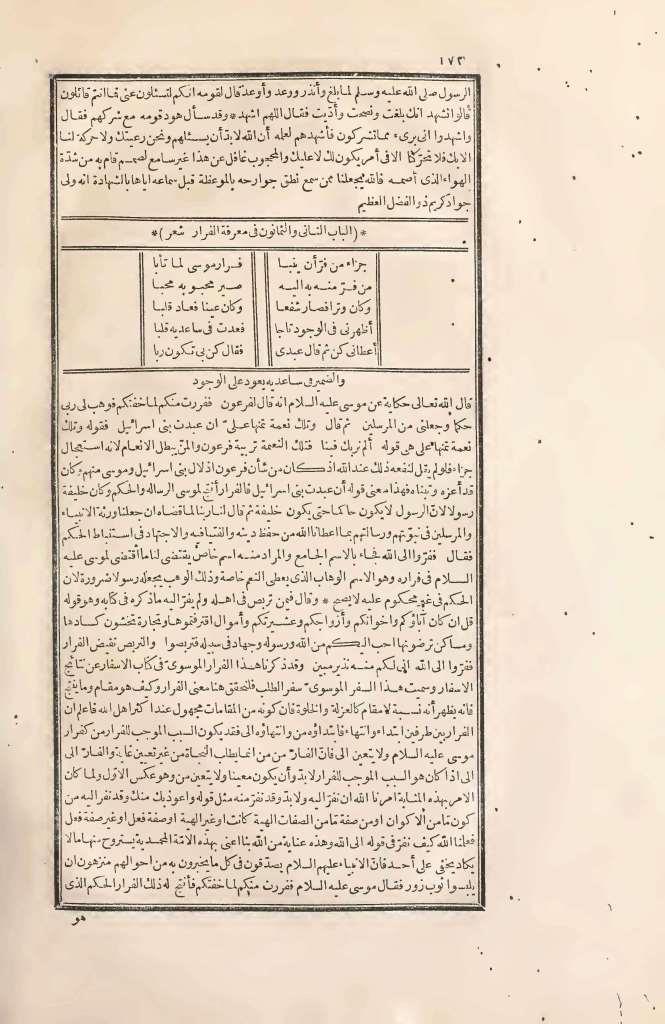 ١٧٢
الرسول صلى الله عليه وسلم لما بلغ وأنذر ووعد وأوعد قال لقومه انكم لتسئلون عنى فما أنتم قائلون
قالوا نشهد انك بلغت ونصحت وأدّيت فقال اللهم اشهد * وقد سأل هود قومه مع شركهم فقال
واشهدوا انى برىء مما تشركون فأشهدهم لعلمه أن الله لا بد أن يسئلهم ونحن رعيتك ولا حركة لنا
الا بك فلا تحرّكنا الا فى أمر يكون لك لا عليك والمحجوب غافل عن هذا غير سامع لصمم قام به من شدّة
الهواء الذى أصمه فالله يجعلنا ممن سمع نطق جوارحه بالموعظة قبل سماعه اياها بالشهادة انه ولى
جواد كريم ذو الفضل العظيم
* (الباب الثانى والثمانون فى معرفة الفرار شعر) *
جزاء من فرّ أن ينبا فرار موسى لما تأبا
من فرّ منه به اليه صير محبوبه محبا
وكان وترا فصار شفعا وكان عينا فعاد قلبا
أظهرنى فى الوجود تاجا فعدت فى ساعديه قلبا
أعطانى كن ثم قال عبدى فقال كن بى تكون ربا
والضمير فى ساعديه يعود على الوجود
قال الله تعالى حكاية عن موسى عليه السلام انه قال لفرعون ففررت منكم لما خفتكم فوهب لى ربى
حكما وجعلنى من المرسلين ثم قال وتلك نعمة تمنها علىّ ان عبدت بنى اسرائيل فقوله وتلك
نعمة تمنها على هى قوله ألم نربك فينا فتلك النعمة تربية فرعون والمنّ يبطل الانعام لانه استعجال
جزاء فلو لم يقل لنفعه ذلك عند الله اذ كان من شأن فرعون اذلال بنى اسرائيل وموسى منهم وكان
قد أعزه وتبناه فهذا معنى قوله أن عبدت بنى اسرائيل فالفرار أنتج لموسى الرسالة والحكم وكان خليفة
رسولا لانّ الرسول لا يكون حاكما حتى يكون خليفة ثم قال انّ ربنا لما قضاه ان جعلنا ورثة الانبياء
والمرسلين فى نبوّتهم ورسالتهم بما اعطانا الله من حفظ دينه والفتيا فيه والاجتهاد فى استنباط الحكم
فقال ففرّوا الى الله فجاء بالاسم الجامع والمراد منه اسم خاصّ يقتضى لنا ما اقتضى لموسى عليه
السلام فى فراره وهو الاسم الوهاب الذى يعطى النعم خاصة وذلك الوهب يجعله رسولا ضرورة لان
الحكم فى غير محكوم عليه لا يصح * وقال فيمن تربص فى اهله ولم يفرّ اليه ما ذكره فى كتابه وهو قوله
قل ان كان آباؤكم واخوانكم وأزواجكم وعشيرتكم وأموال اقترفتموها وتجارة تخشون كسادها
ومساكن ترضونها احب اليكم من الله ورسوله وجهاد فى سبيله فتربصوا والتربص نقيض الفرار
ففرّوا الى الله انى لكم منه نذير مبين وقد ذكرنا هذا الفرار الموسوىّ فى كتاب الاسفار عن نتائج
الاسفار وسميت هذا السفر الموسوىّ سفر الطلب فلنحقق هنا معنى الفرار وكيف هو مقام وما ينتج
فانه يظهر أنه نسبة لا مقام كالعزلة والخلوة فانّ كونه من المقامات مجهول عند اكثر اهل الله فاعلم ان
الفرار بين طرفين ابتداء وانتهاء فابتداؤه من وانتهاؤه الى فقد يكون السبب الموجب للفرار من كفرار
موسى عليه السلام ولا يتعين الى فانّ الفارّ من من انما يطلب النجاة من غير تعيين غاية والفارّ الى
الى اذا كان هو السبب الموجب للفرار لا بدّ وأن يكون معينا ولا يتعين من وهو عكس الاوّل ولما كان
الامر بهذه المثابة امرنا الله ان نفرّ اليه ولا بدّ وقد نفرّ منه مثل قوله واعوذ بك منك وقد نفر اليه من
كون تما من الاكوان او من صفة تما من الصفات الهية كانت او غير الهية او صفة فعل او غير صفة فعل
فعلمنا الله كيف نفرّ فى قوله الى الله وهذه عناية من الله بنا اعنى بهذه الامّة المحمدية يستروح منها ما لا
يكاد يخفى على أحد فانّ الانبياء عليهم السلام يصدّقون فى كل ما يخبرون به من احوالهم منزهون ان
يلبسوا ثوب زور فقال موسى عليه السلام ففررت منكم لما خفتكم فأنتج له ذلك الفرار الحكم الذى
هو